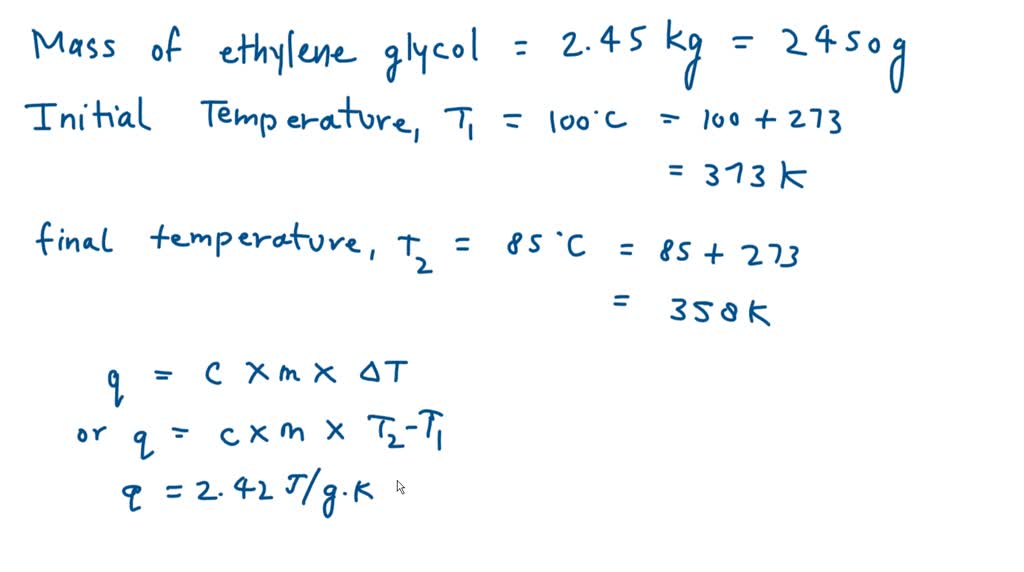 Mass of ethylene glycol = 2.45 kg = 2450g
Initial Temperature, T₁ = 100°C = 100 + 273
= 373 K
final temperature, T₂ = 85°C = 85 + 273
= 358K
q = C × m × ΔT
or q = C × m × T₂-T₁
q = 2.42 J/g.K